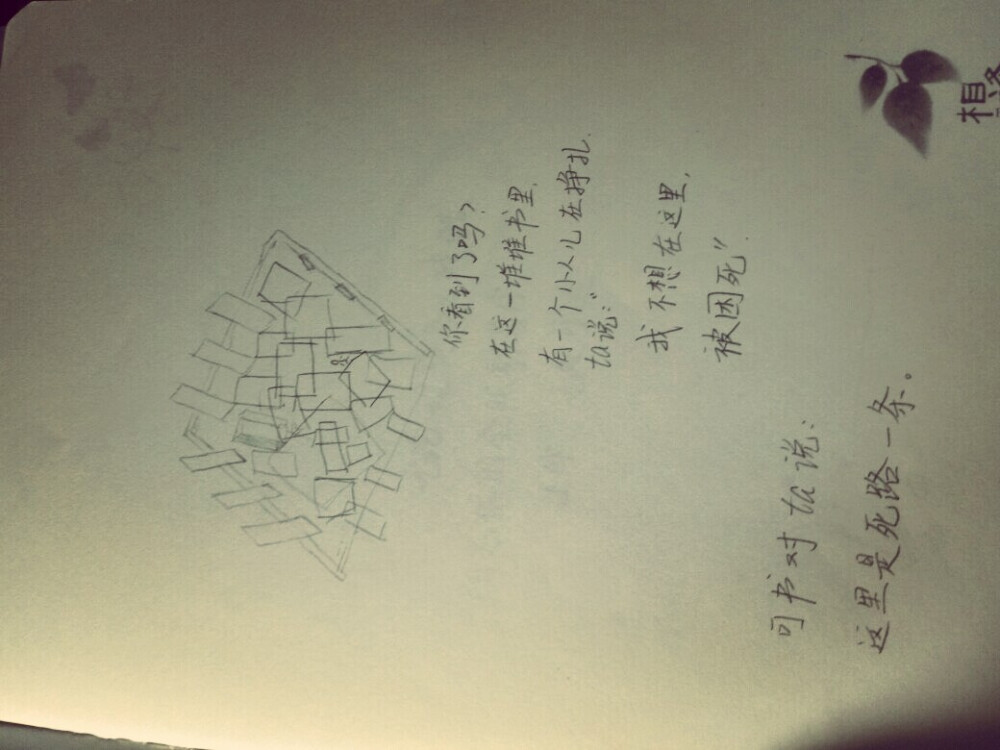 你看到了吗?
在这一堆堆书里,
有一个小人儿在挣扎.
ta说:“
我不想在这里,
被困死”.
司书对ta说:
这里是死路一条。
相